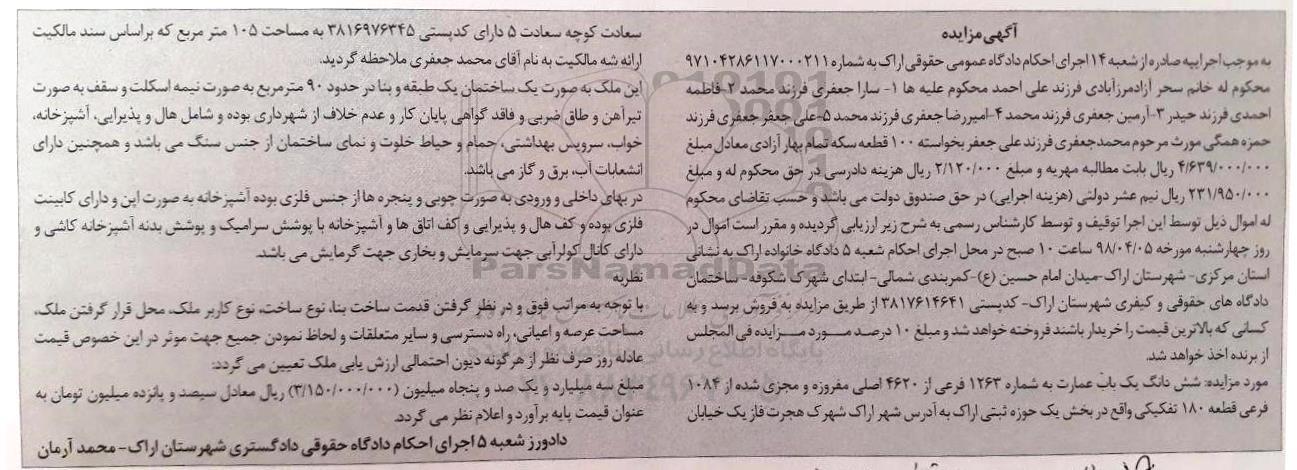 آگهی مزایده
به موجب اجراییه صادره از شعبه ۱۴ اجرای احکام دادگاه عمومی حقوقی اراک به شماره ۹۷۱۰۴۲۸۶۱۱۷۰۰۰۲۱۱
محکوم له خانم سحر آزادمرزآبادی فرزند علی احمد محکوم علیه ها ۱- سارا جعفری فرزند محمد ۲-فاطمه
احمدی فرزند حیدر ۳-آرمین جعفری فرزند محمد ۴-امیررضا جعفری فرزند محمد ۵-علی جعفر جعفری فرزند
حمزه همگی مورث مرحوم محمدجعفری فرزند علی جعفر بخواسته ۱۰۰ قطعه سکه تمام بهار آزادی معادل مبلغ
۴/۶۳۹/۰۰۰/۰۰۰ ریال بابت مطالبه مهریه و مبلغ ۲/۱۲۰/۰۰۰ ریال هزینه دادرسی در حق محکوم له و مبلغ
۲۳۱/۹۵۰/۰۰۰ ریال نیم عشر دولتی (هزینه اجرایی) در حق صندوق دولت می باشد و حسب تقاضای محکوم
له اموال ذیل توسط این اجرا توقیف و توسط کارشناس رسمی به شرح زیر ارزیابی گردیده و مقرر است اموال در
روز چهارشنبه مورخه ۹۸/۰۴/۰۵ ساعت ۱۰ صبح در محل اجرای احکام شعبه ۵ دادگاه خانواده اراک به نشانی
استان مرکزی- شهرستان اراک-میدان امام حسین (ع)-کمربندی شمالی- ابتدای شهرک شکوفه- ساختمان
دادگاه های حقوقی و کیفری شهرستان اراک- کدپستی ۳۸۱۷۶۱۴۶۴۱ از طریق مزایده به فروش برسد و به
کسانی که بالاترین قیمت را خریدار باشند فروخته خواهد شد و مبلغ ۱۰ درصد مورد مزایده فی المجلس
از برنده اخذ خواهد شد.
مورد مزایده: شش دانگ یک باب عمارت به شماره ۱۲۶۳ فرعی از ۴۶۲۰ اصلی مفروزه و مجزی شده از ۱۰۸۴
فرعی قطعه ۱۸۰ تفکیکی واقع در بخش یک حوزه ثبتی اراک به آدرس شهر اراک شهرک هجرت فاز یک خیابان
سعادت کوچه سعادت ۵ دارای کدپستی ۳۸۱۶۹۷۶۳۴۵ به مساحت ۱۰۵ متر مربع که براساس سند مالکیت
ارائه شه مالکیت به نام آقای محمد جعفری ملاحظه گردید.
این ملک به صورت یک ساختمان یک طبقه و بنا در حدود ۹۰ مترمربع به صورت نیمه اسکلت و سقف به صورت
تیرآهن و طاق ضربی و فاقد گواهی پایان کار و عدم خلاف از شهرداری بوده و شامل هال و پذیرایی، آشپزخانه،
خواب، سرویس بهداشتی، حمام و حیاط خلوت و نمای ساختمان از جنس سنگ می باشد و همچنین دارای
انشعابات آب، برق و گاز می باشد.
در بهای داخلی و ورودی به صورت چوبی و پنجره ها از جنس فلزی بوده آشپزخانه به صورت اپن و دارای کابینت
فلزی بوده و کف هال و پذیرایی و کف اتاق ها و آشپزخانه با پوشش سرامیک و پوشش بدنه آشپزخانه کاشی و
دارای کانال کولرآبی جهت سرمایش و بخاری جهت گرمایش می باشد.
نظریه
با توجه به مراتب فوق و در نظر گرفتن قدمت ساخت بنا، نوع ساخت، نوع کاربر ملک، محل قرار گرفتن ملک،
مساحت عرصه و اعیانی، راه دسترسی و سایر متعلقات و لحاظ نمودن جمیع جهت موثر در این خصوص قیمت
عادله روز صرف نظر از هرگونه دیون احتمالی ارزش یابی ملک تعیین می گردد:
مبلغ سه میلیارد و یک صد و پنجاه میلیون (۳/۱۵۰/۰۰۰/۰۰۰) ریال معادل سیصد و پانزده میلیون تومان به
عنوان قیمت پایه برآورد و اعلام نظر می گردد.
دادورز شعبه ۵ اجرای احکام دادگاه حقوقی دادگستری شهرستان اراک- محمد آرمان
ParsNamadData